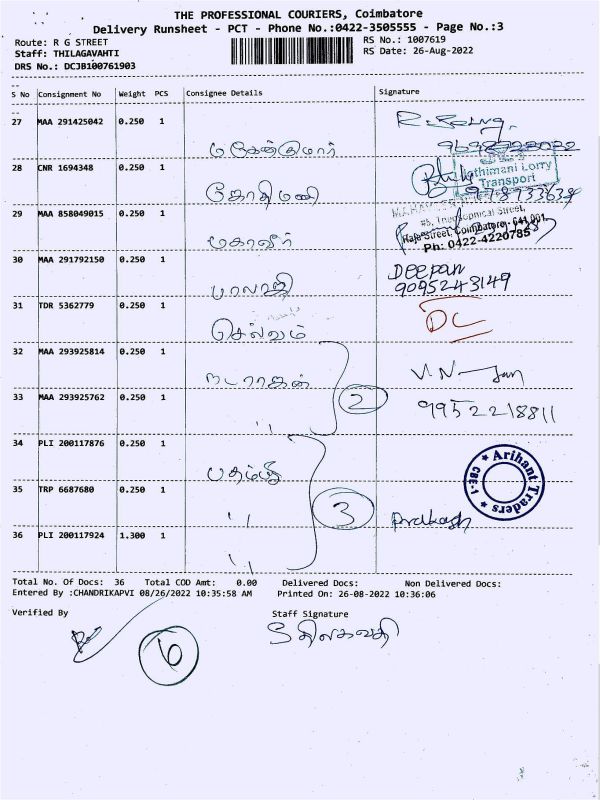 THE PROFESSIONAL COURIERS, Coimbatore
Delivery Runsheet - PCT - Phone No.:0422-3505555 - Page No.:3
Route: R G STREET
RS No.: 1007619
Staff: THILAGAVAHTI
RS Date: 26-Aug-2022
DRS No.: DCJB100761903
S No Consignment No Weight PCS Consignee Details Signature
27 MAA 291425042 0.250 1
மகேன்குமார்
28 CNR 1694348 0.250 1
ஜோதிமணி
Jothimani Lorry
Transport
29 MAA 858049015 0.250 1
மகாவீர்
#5, Theosophical Street,
Raja Street, Coimbatore - 641 001.
Ph: 0422-4220785
30 MAA 291792150 0.250 1 Deepan
பாலாஜி 9095243149
31 TDR 5362779 0.250 1 DC
செல்வம்
32 MAA 293925814 0.250 1
நடராஜன்
33 MAA 293925762 0.250 1 2 9952218811
''
34 PLI 200117876 0.250 1
Arihant Traders
CBE-1
35 TRP 6687680 0.250 1 3
'' Prakash
36 PLI 200117924 1.300 1
''
Total No. Of Docs: 36 Total COD Amt: 0.00 Delivered Docs: Non Delivered Docs:
Entered By :CHANDRIKAPVI 08/26/2022 10:35:58 AM Printed On: 26-08-2022 10:36:06
Verified By Staff Signature
6 S திலகவதி